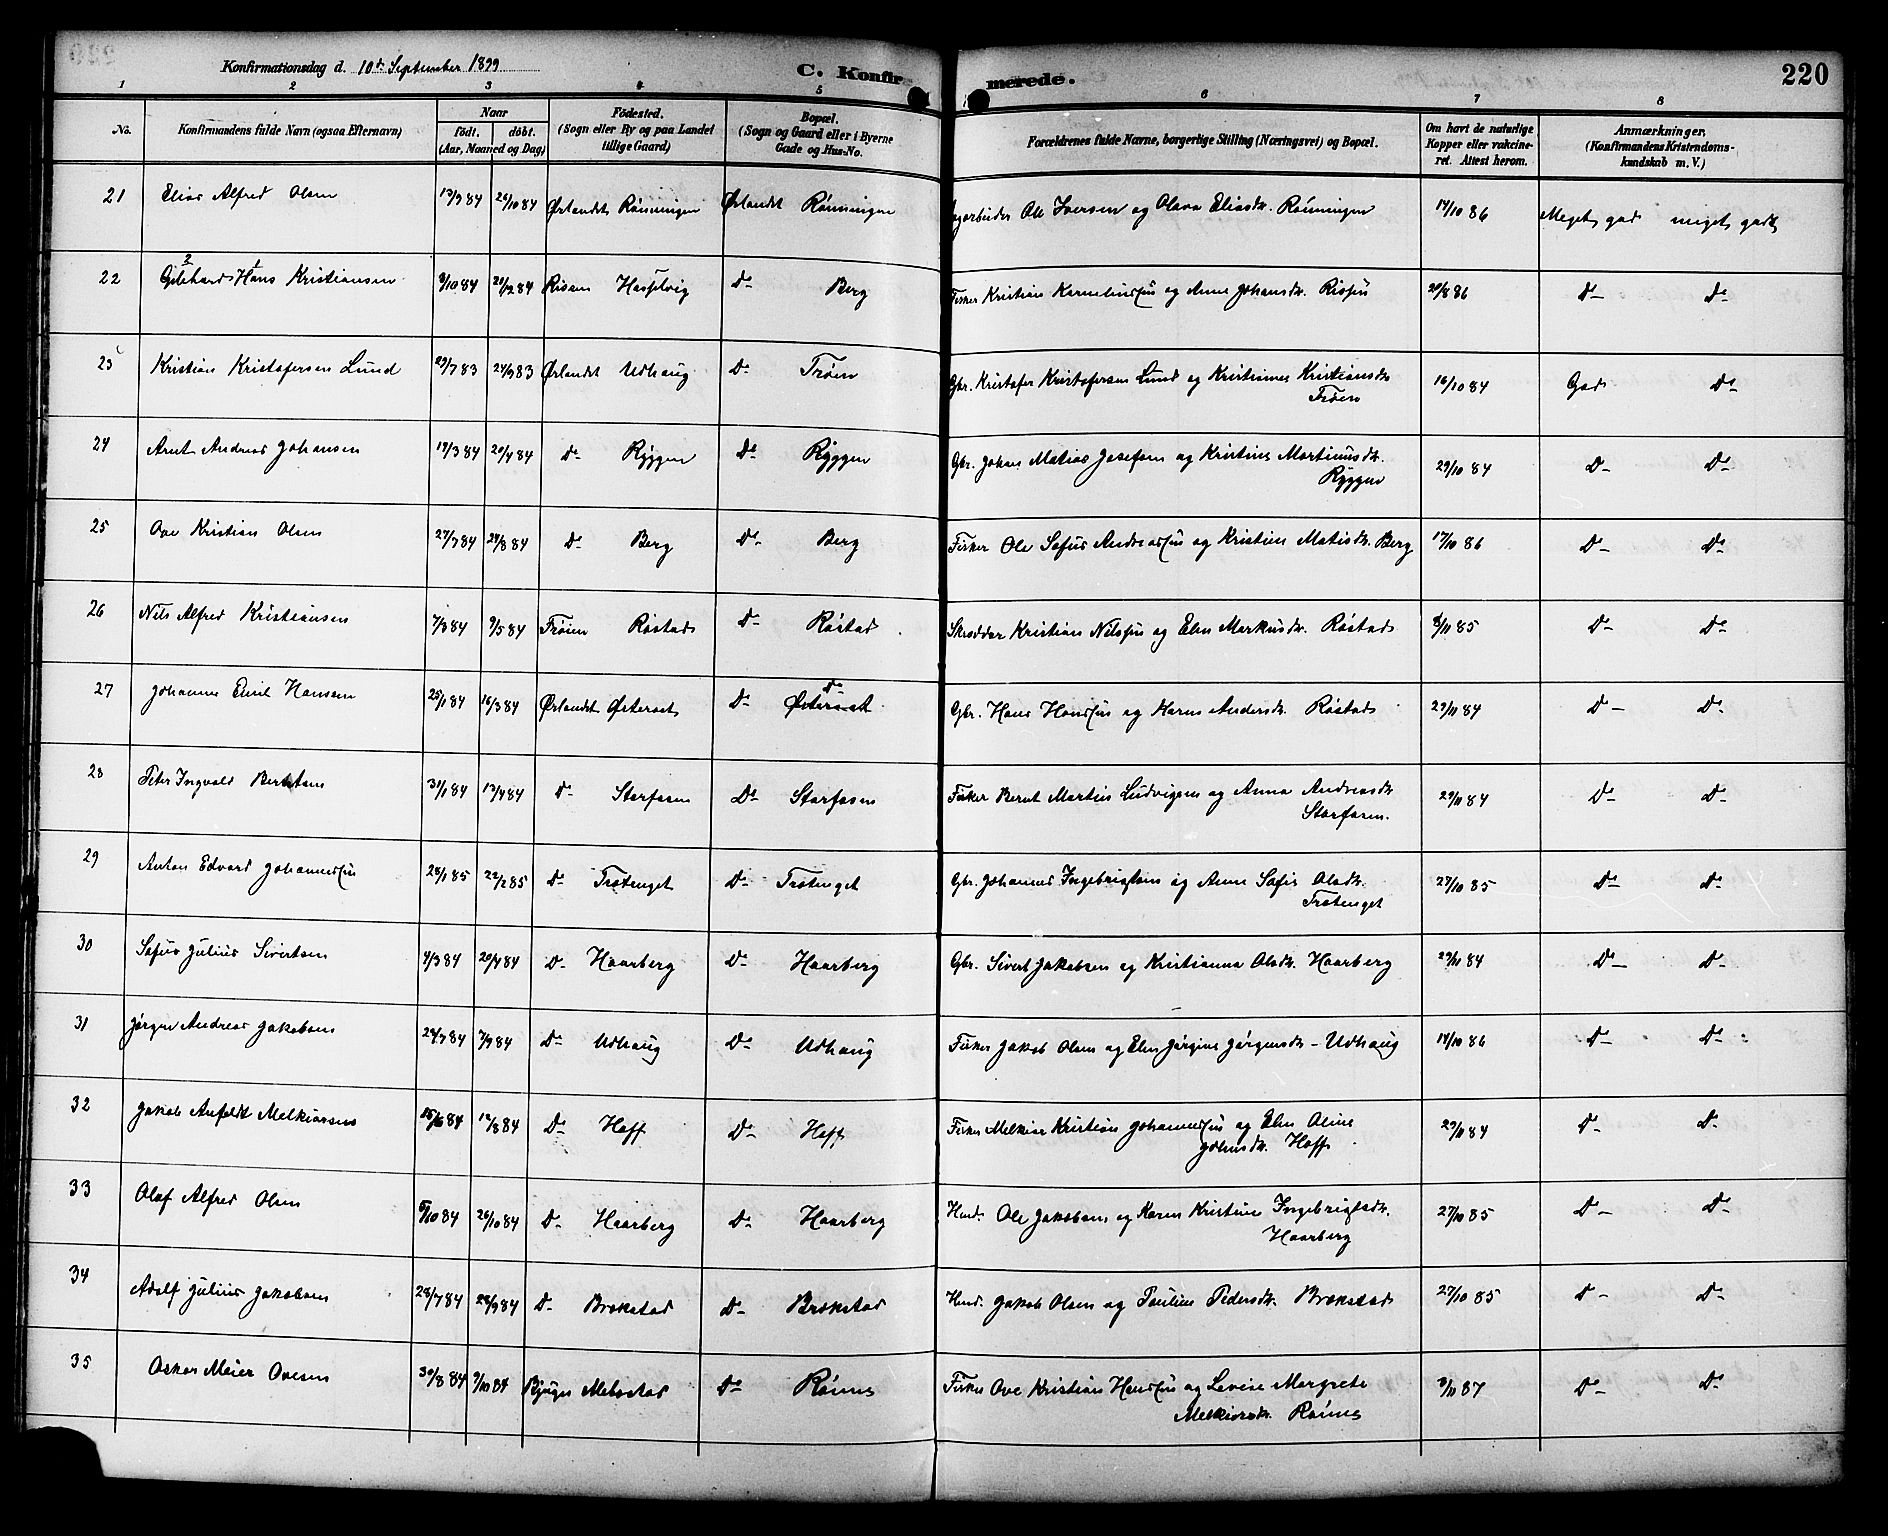 Konfirmationsdag d. 10de September 1899
C. Konfirmerede.
220
1 2 3 4 5 6 7 8
No.
Konfirmandens fulde Navn (ogsaa Efternavn)
Naar
födt. döbt.
(Aar, Maaned og Dag)
Födested.
(Sogn eller By og paa Landet
tillige Gaard)
Bopæl.
(Sogn og Gaard eller i Byerne
Gade og Hus-No.
Forældrenes fulde Navne, borgerlige Stilling (Næringsvei) og Bopæl.
Om havt de naturlige
Kopper eller vakcine-
ret. Attest herom.
Anmærkninger.
(Konfirmandens Kristendoms-
kundskab m. V.)
21 Elias Alfred Olsen 26/10 84 Ørlandet Rönningen Ørlandet Rönningen Ole Iversen og Olava Eliasdr. Rönningen 14/10 86 Meget god meget godt
22 Hans Kristiansen 9/10 84 Risen Hasselvig Do Berg Fisker Kristian Kornelius[sen] og Anne Johansdr. Rissen 20/8 86 Do Do
23 Kristian Kristofersen Lund 29/7 83 Ørlandet Udhaug Do Tröen Gbr. Kristofer Kristofersen Lund og Kristianna Kristiansdr.
Tröen 16/10 84 God Do
24 Arnt Andreas Johansen 19/3 84 20/4 84 Do Ryggen Do Ryggen Gbr. Johan Matias Josefsen og Kristine Martinusdr.
Ryggen 29/10 84 Do Do
25 Ove Kristian Olsen 27/7 84 24/8 84 Do Berg Do Berg Fisker Ole Sefus Andreassen og Kristine Matisdr. Berg 17/10 86 Do Do
26 Nils Alfred Kristiansen 7/3 84 9/5 84 Röstad Do Röstad Skrædder Kristian Nilssen og Elen Markusdr. Röstad 8/11 85 Do Do
27 Johannes Emil Hansen 25/1 84 16/3 84 Ørlandet Østeraat Do Østeraat Do Gbr. Hans Hanssen og Karen Andersdr. Röstad 29/11 84 Do Do
28 Peter Ingvald Berntsen 31/1 84 13/4 84 Do Storfosen Do Storfosen Fisker Bernt Martin Ludvigsen og Anna Andreasdr.
Storfosen. 29/11 84 Do Do
29 Anton Edvard Johannessen 28/1 85 22/2 85 Do Trötenget Do Trötenget Gbr. Johannes Ingebrigtsen og Anne Sofie Olsdr.
Trötenget 27/10 85 Do Do
30 Sefus Julius Sivertsen 4/3 84 20/4 84 Do Haarberg Do Haarberg Gbr. Sivert Jakobsen og Kristianna Olsdr. Haarberg 29/11 84 Do Do
31 Jørgen Andreas Jakobsen 24/7 84 7/9 84 Do Udhaug Do Udhaug Fisker Jakob Olsen og Elen Jørgine Jørgensdr. - Udhaug 14/10 86 Do Do
32 Jakob Anfeldt Melkiorsen 15/6 84 12/8 84 Do Hoff Do Hoff Fisker Melkior Kristian Johannessen og Elen Oline
Johnsdr. Hoff 29/11 84 Do Do
33 Olaf Alfred Olsen 6/10 84 26/10 84 Do Haarberg Do Haarberg Hmd. Ole Jakobsen og Karen Kristine Ingebrigtsdr.
Haarberg 27/10 85 Do Do
34 Adolf Julius Jakobsen 28/7 84 28/9 84 Do Brækstad Do Brækstad Hmd. Jakob Olsen og Pauline Pedersdr. Brækstad 27/10 85 Do Do
35 Oskar Meier Ovesen 30/8 84 9/10 84 Bjugn Mebostad Do Rönne Fisker Ove Kristian Hanssen og Lovise Margrete
Melkiorsdr. Rönne 3/11 87 Do Do